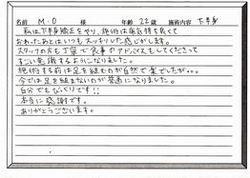 名前 M・O 様 年齢 22歳 施術内容 下半身
私は下半身矯正をやり、施術は毎回気持ち良くて
おわったあとはいつもスッキリした感じがします。
スタッフの方も丁寧で食事のアドバイスもしてくださって
すごい意識するようになりました。
施術する前は足を組むのが自然で楽でしたが、、
今では足を組まないのが普通になりました。
自分でもびっくりです!!
本当に感謝です。
ありがとうございます。